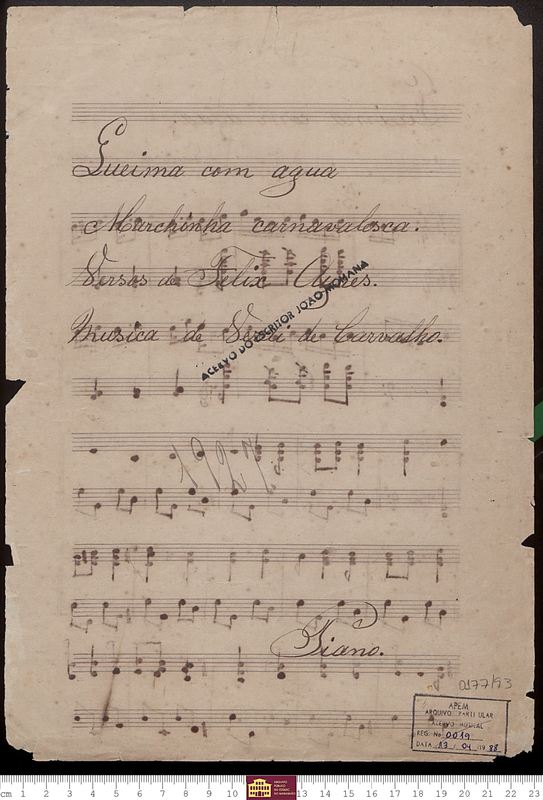 Queima com agua
Marchinha carnavalesca.
Versos de Felix Ayres.
Musica de Verdi de Carvalho.
ACERVO DO ESCRITOR JOÃO MOHANA
1927
Piano.
0177/93
APEM
ARQUIVO PARTICULAR
ACERVO MUSICAL
REG. No 0019
DATA 13 / 04 / 19 88
cm 1 2 3 4 5 6 7 8 9 10 13 14 15 16 17 18 19 20 21 22 23
ARQUIVO
PÚBLICO
DO ESTADO
DO MARANHÃO